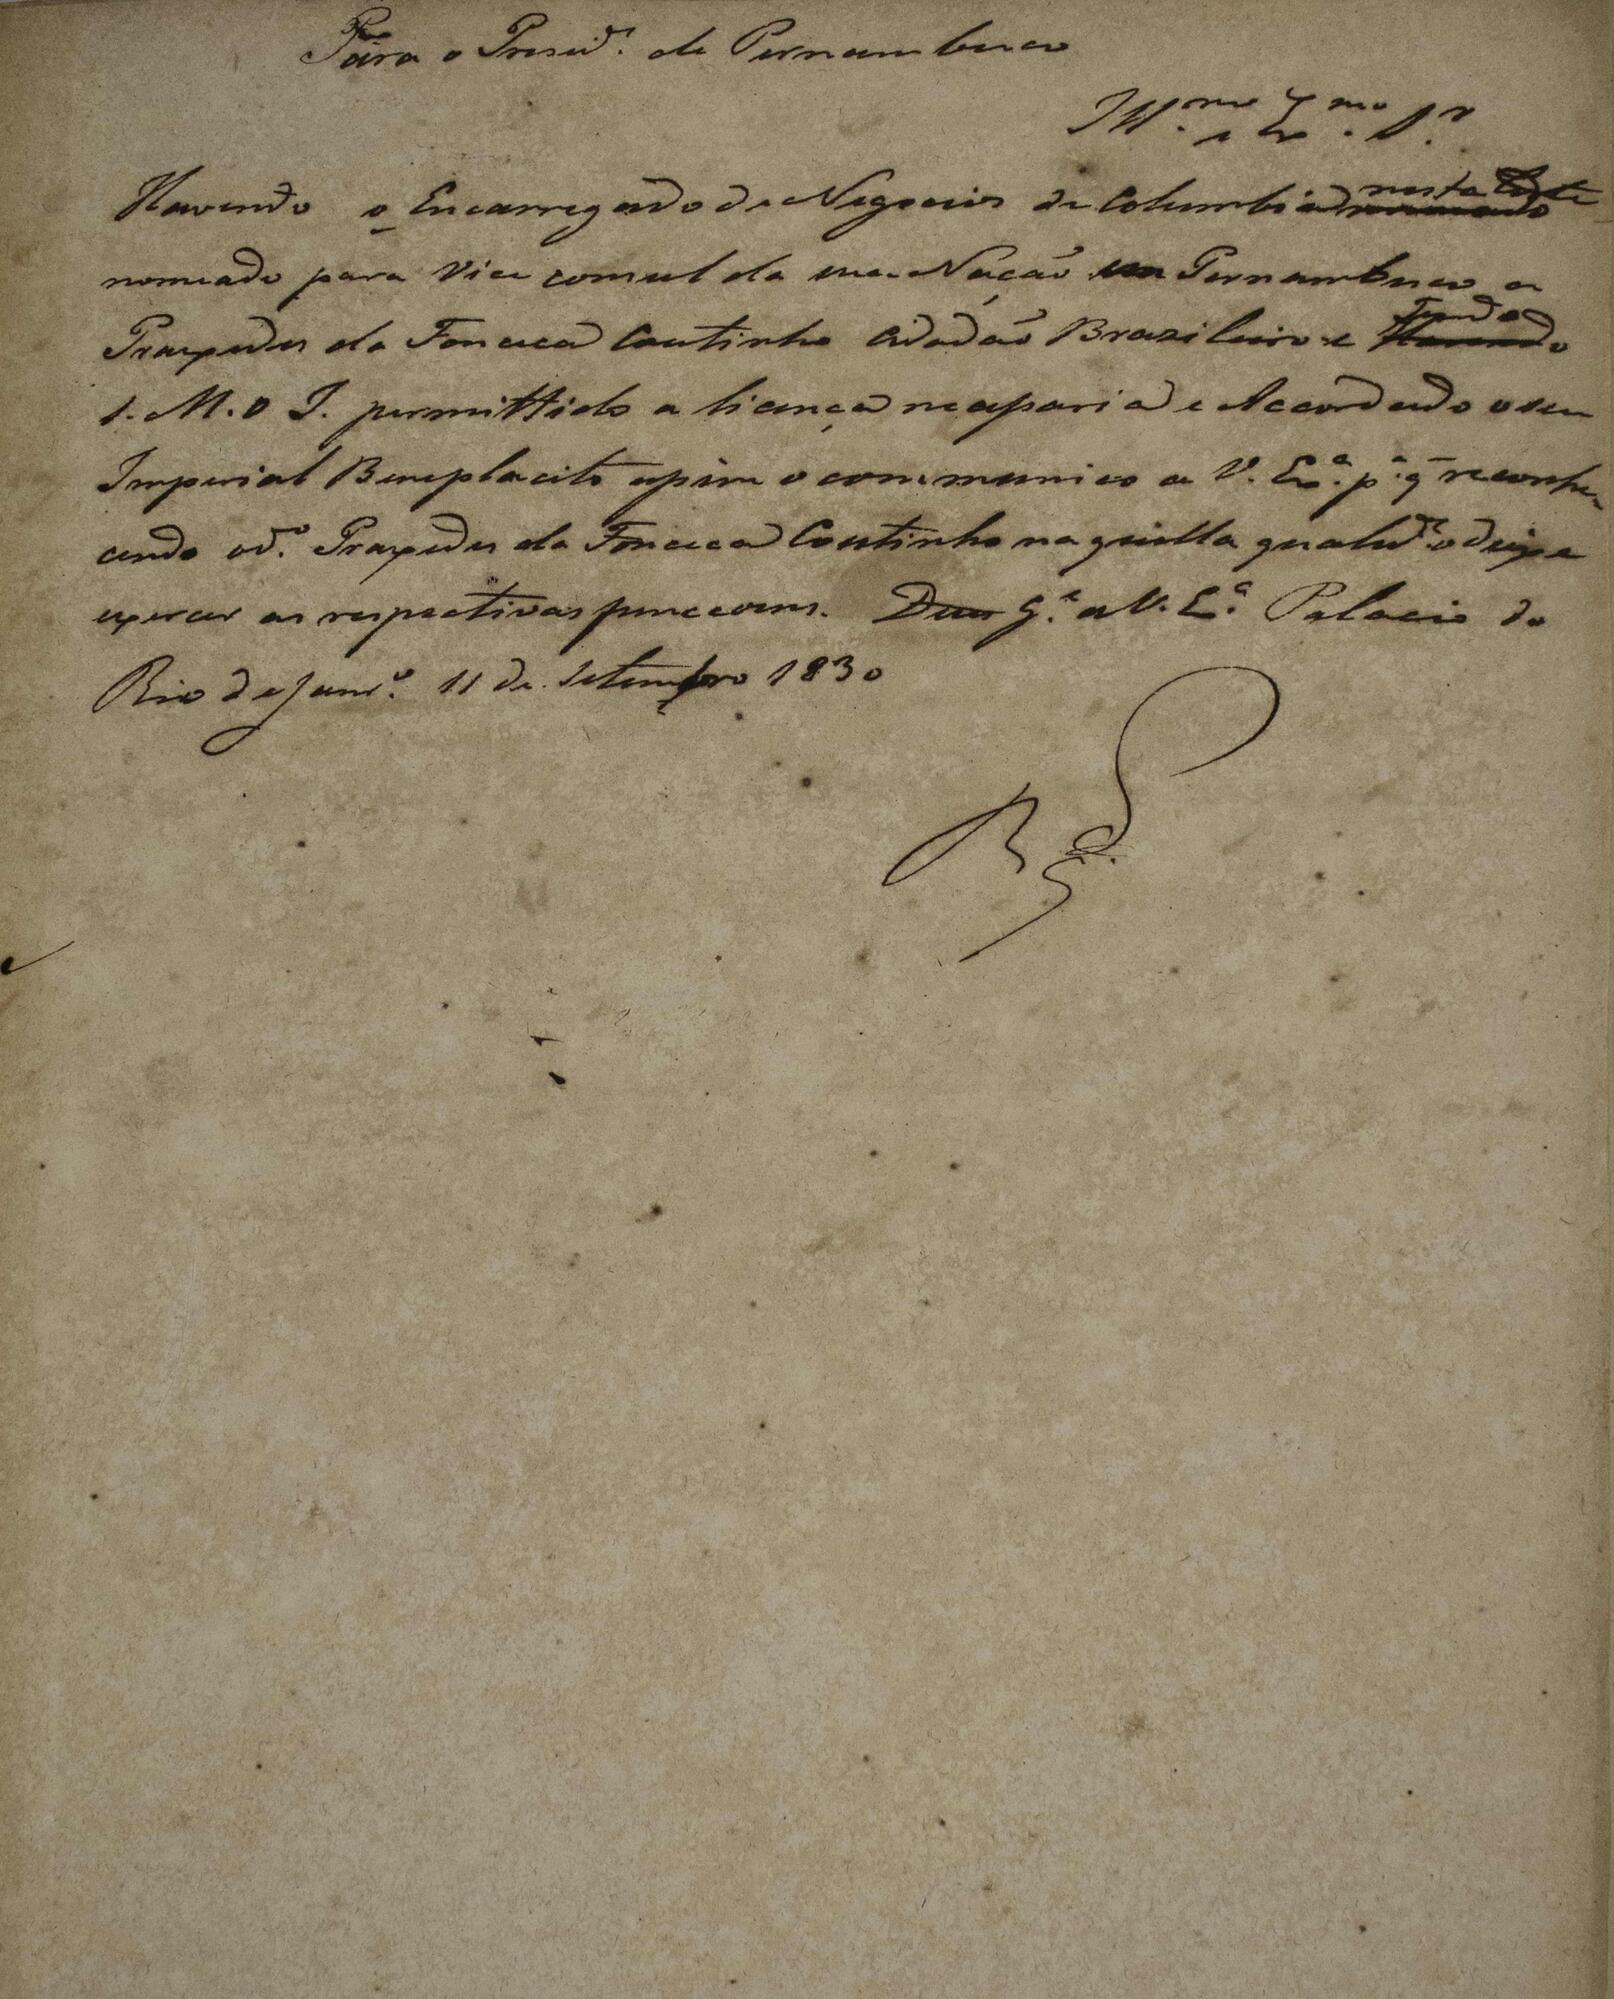 Para o Presid.e de Pernambuco
Ill.mo e Ex.mo S.r
Havendo o Encarregado de Negocios de Columbia nesta Corte
nomeado para Vice consul da sua Nação em Pernambuco a
Praxedes da Fonceca Coutinho Cidadão Brazileiro e Tendo
S. M. O I. permittido a licença necessaria e Accordado o seu
Imperial Beneplacito assim o communico a V. Ex.a p.a q̃ reconhe-
cendo o d.o Praxedes da Fonceca Coutinho naquella qualid.e o deixe
exercer as respectivas funccoens. Deos G.e a V. Ex.a Palacio do
Rio de Janr.o 11 de Setembro 1830